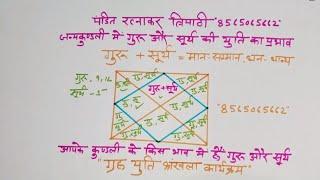 पंडित रत्नाकर त्रिपाठी "8565065662"
जन्मकुण्डली में गुरू और सूर्य की युति का प्रभाव
गुरू + सूर्य = मान-सम्मान, धन-धान्य
गुरू - 9, 12
सूर्य - 5
गुरू+सूर्य
"8565065662"
आपके कुण्डली के किस भाव में हैं गुरू और सूर्य
"ग्रह युति श्रृंखला कार्यक्रम"